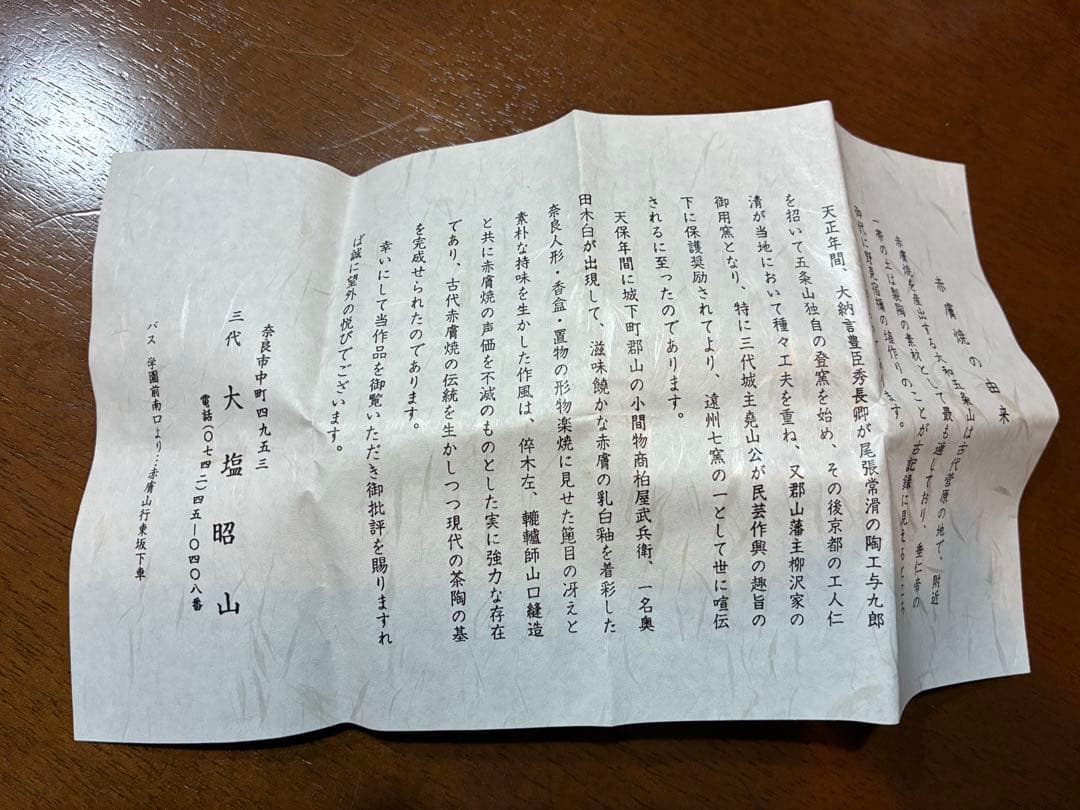 赤膚焼の由来
赤膚焼を産出する大和五条山は古代菅原の地で、附近
一帯の土は製陶の素材として最も適しており、垂仁帝の
御代に野見宿禰の埴作りのことが古記録に見えるところ
ます。
天正年間、大納言豊臣秀長卿が尾張常滑の陶工与九郎
を招いて五条山独自の登窯を始め、その後京都の工人仁
清が当地において種々工夫を重ね、又郡山藩主柳沢家の
御用窯となり、特に三代城主堯山公が民芸作興の趣旨の
下に保護奨励されてより、遠州七窯の一として世に喧伝
されるに至ったのであります。
天保年間に城下町郡山の小間物商柏屋武兵衛、一名奥
田木白が出現して、滋味饒かな赤膚の乳白釉を着彩した
奈良人形・香盒・置物の形物楽焼に見せた箆目の冴えと
素朴な持味を生かした作風は、倅木左、轆轤師山口縫造
と共に赤膚焼の声価を不滅のものとした実に強力な存在
であり、古代赤膚焼の伝統を生かしつつ現代の茶陶の基
を完成せられたのであります。
幸いにして当作品を御覧いただき御批評を賜りますれ
ば誠に望外の悦びでございます。
奈良市中町四九五三
三代 大塩昭山
電話(〇七四二)四五―〇四〇八番
バス 学園前南口より…赤膚山行東坂下車